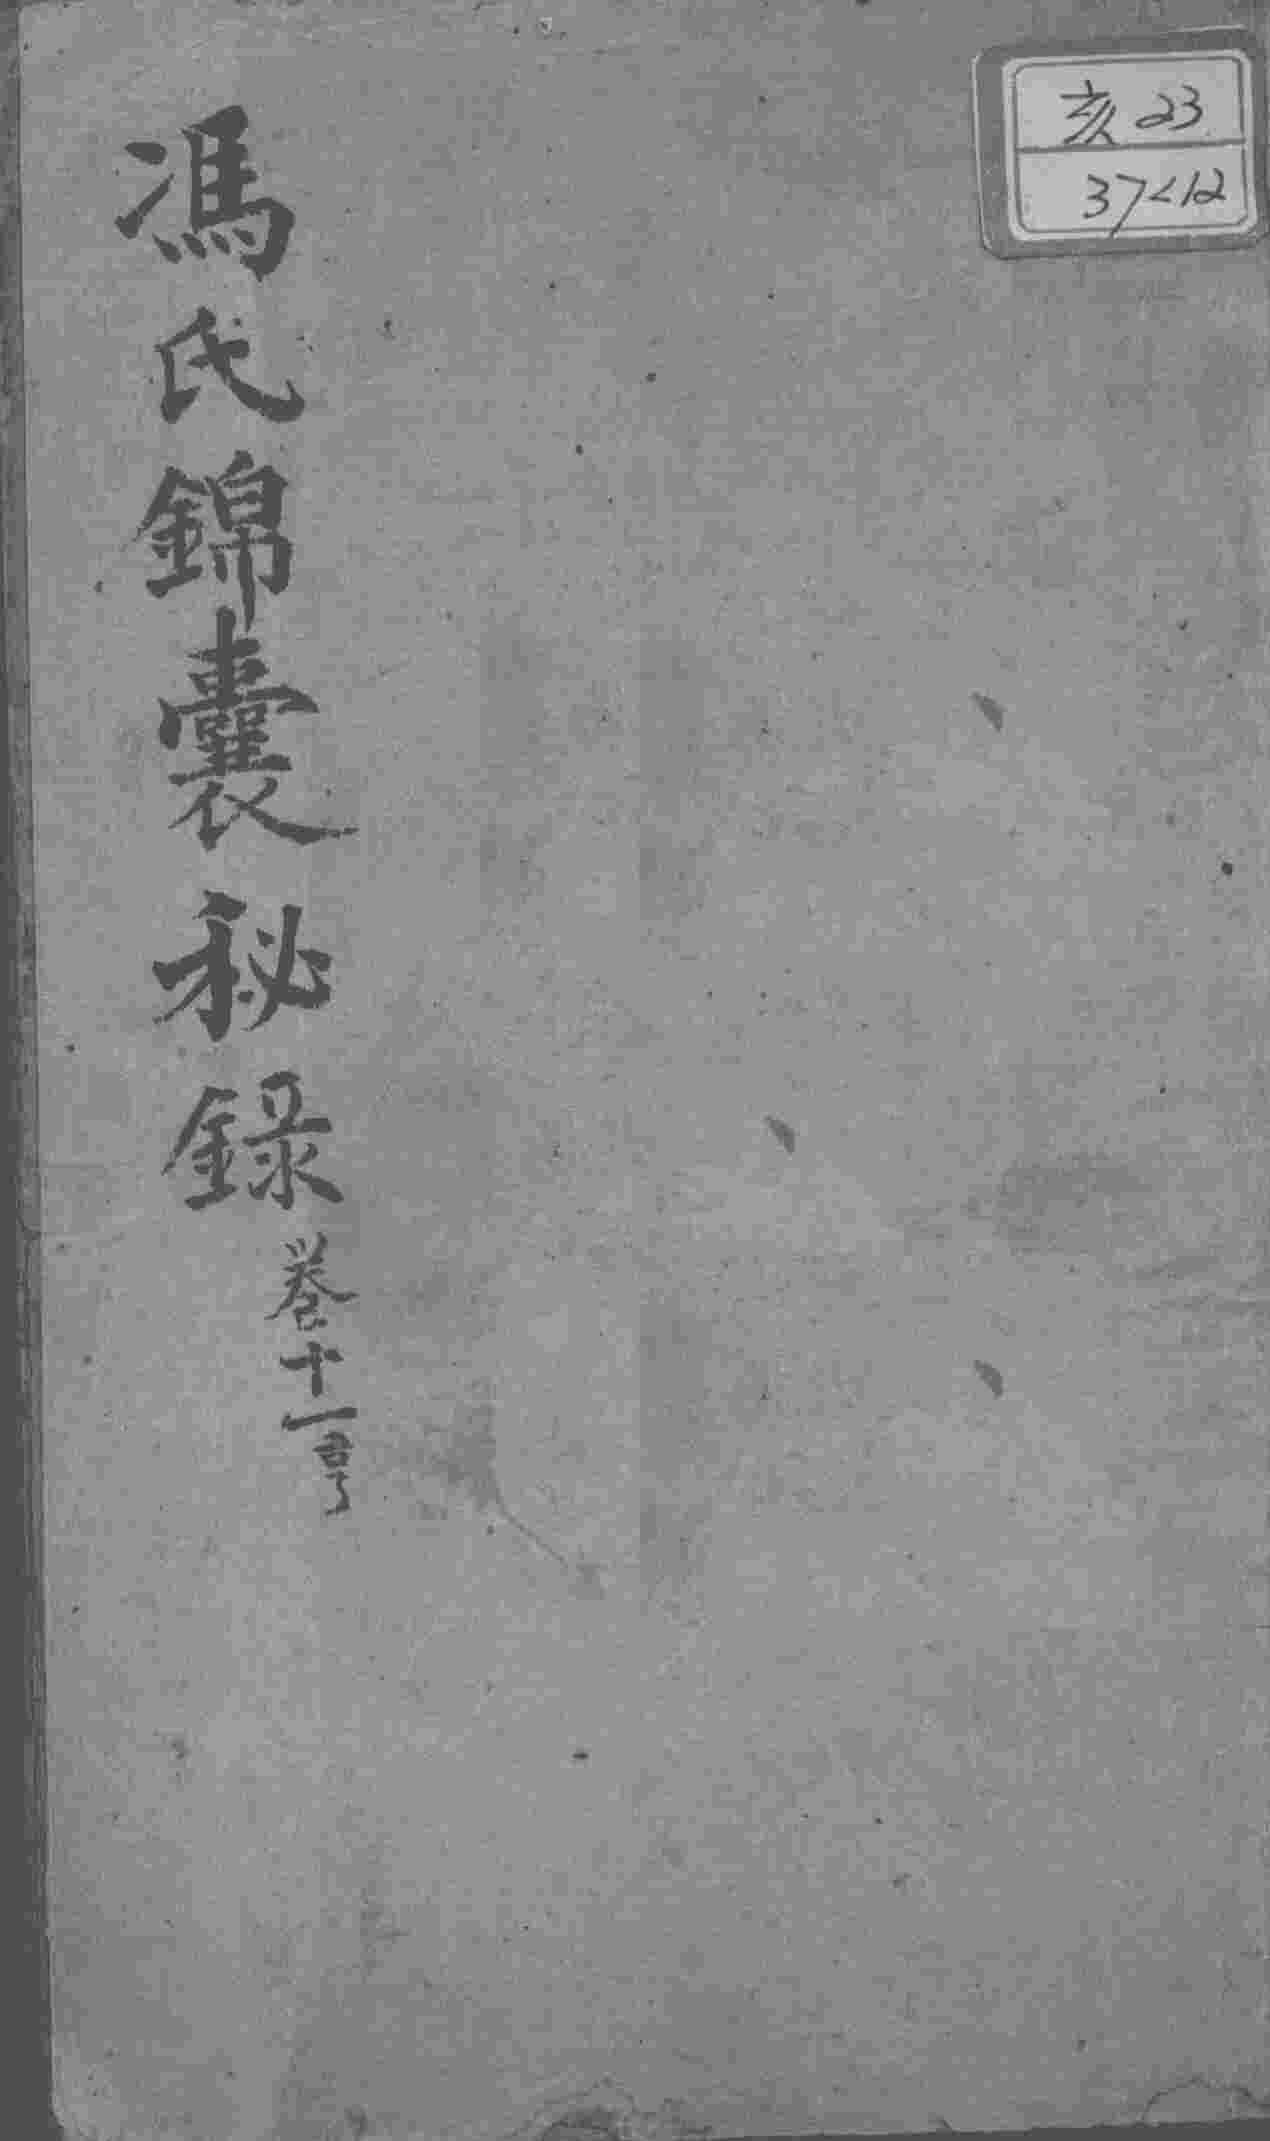 亥23
37<12
馮氏錦囊秘錄
卷十一亨